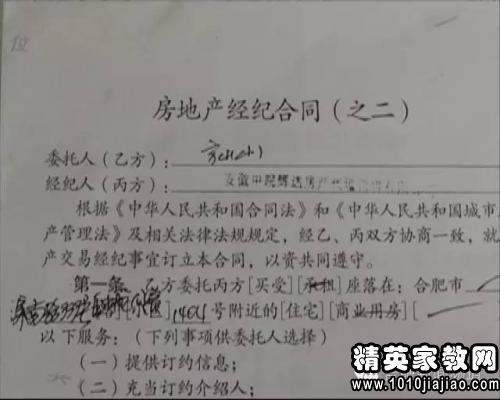 位
房地产经纪合同(之二)
委托人(乙方):
经纪人(丙方):安徽中
根据《中华人民共和国合同法》和《中华人民共和国城市
产管理法》及相关法律法规规定,经乙、丙双方协商一致,就
产交易经纪事宜订立本合同,以资共同遵守。
第一条 乙方委托丙方[买受][承租]座落在:合肥市
]1404号附近的[住宅][商业用房][
以下服务:(下列事项供委托人选择)
(一)提供订约信息;
(二)充当订约介绍人;
精英家教网
www.1010jiajiao.com